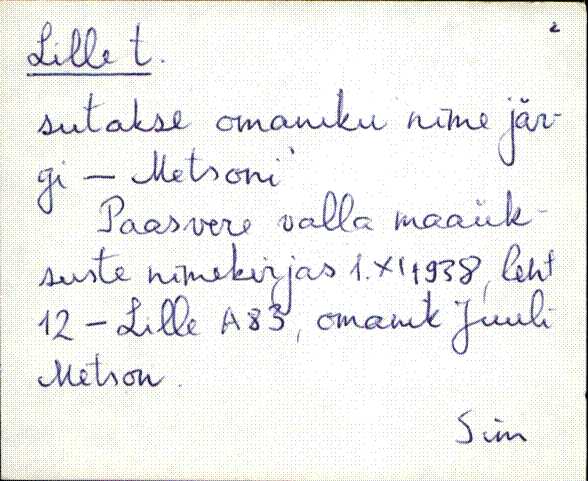 2
Lille t.
sutakse omaniku nime jär-
gi — Metsoni
Paasvere valla maaük-
suste nimekirjas 1.XI 1938, leht
12 - Lille A83, omanik Juuli
Metson.
Sim